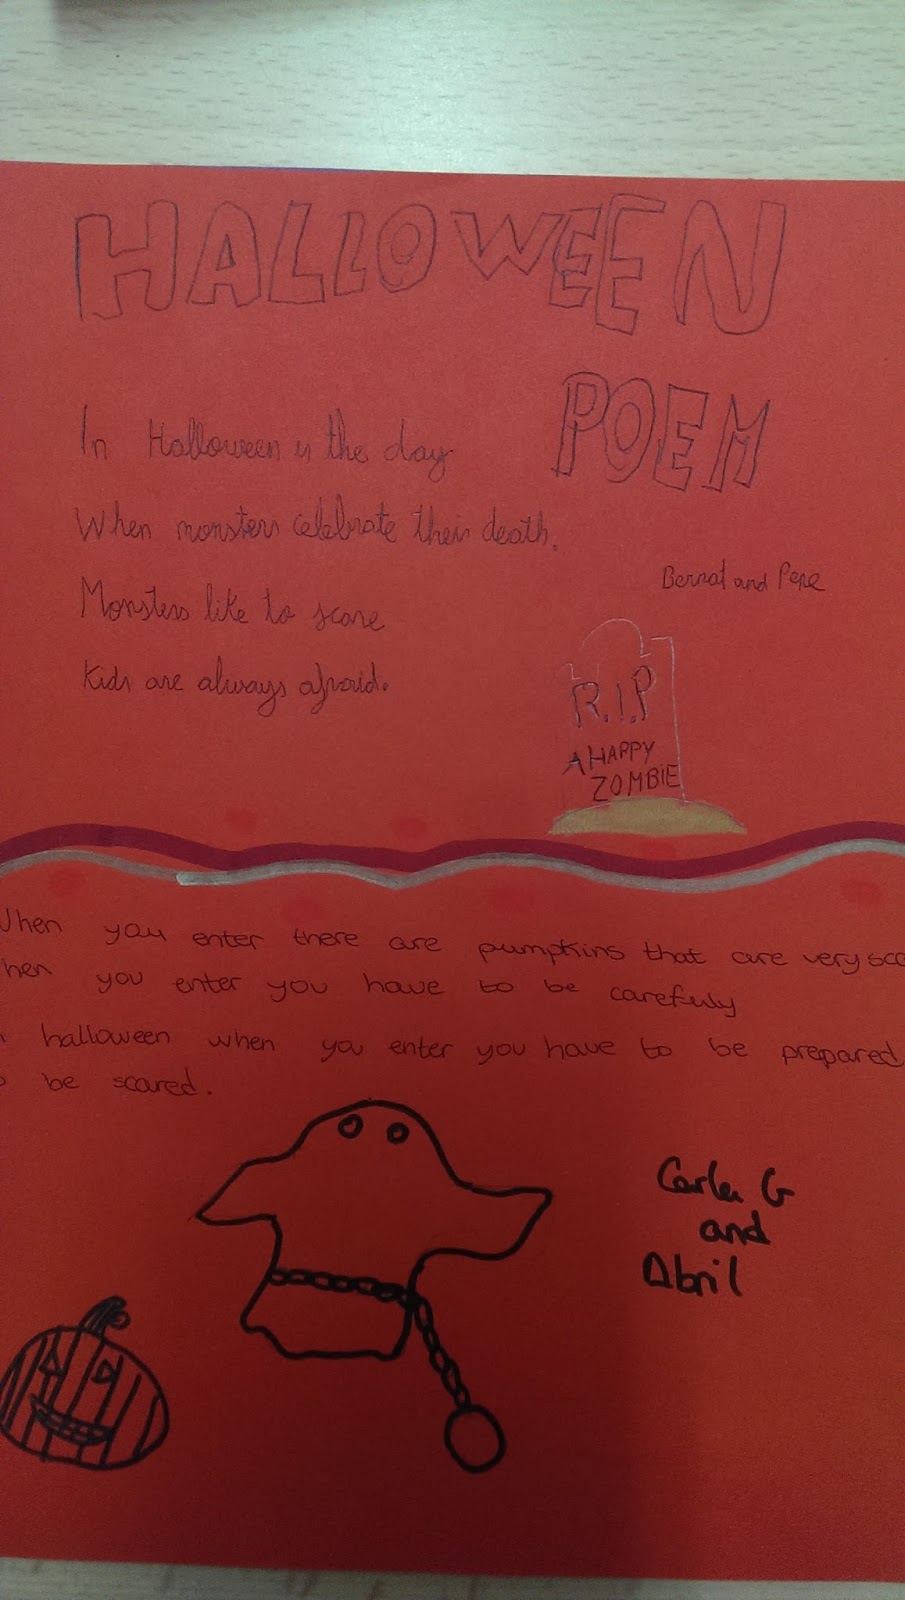 HALLOWEEN
POEM
In Halloween is the day
When monsters celebrate their death.
Monsters like to scare
Kids are always afraid.
Bernat and Pepe
R.I.P
A HAPPY
ZOMBIE
When you enter there are pumpkins that are very sca
hen you enter you have to be carefuly
halloween when you enter you have to be prepared
be scared.
Carla G
and
Abril